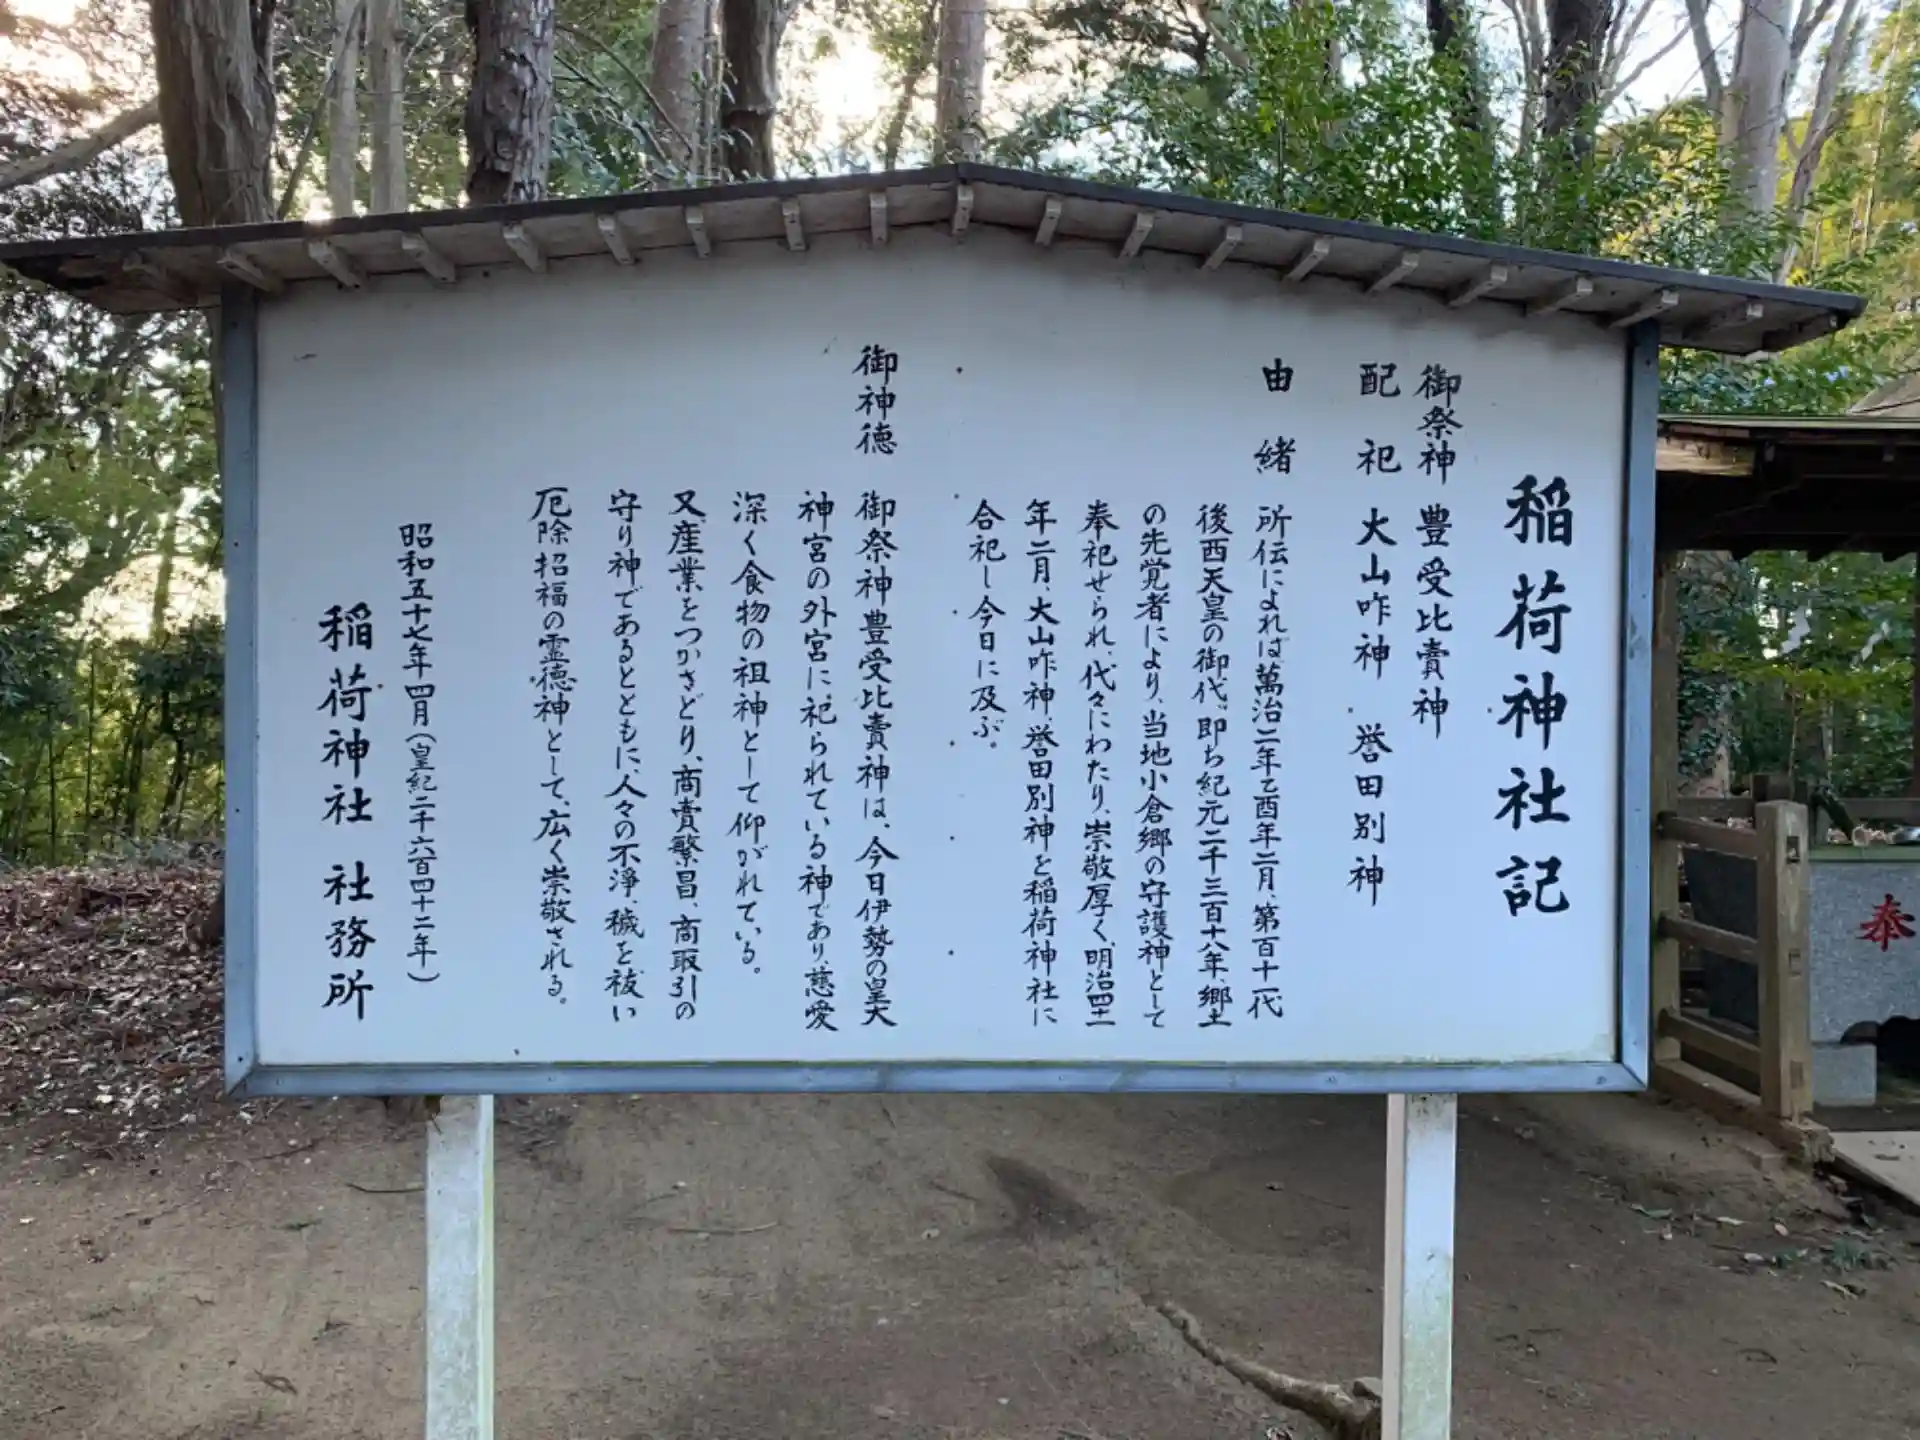 稲荷神社記
御祭神 豊受比賣神
配祀 大山咋神 誉田別神
由緒 所伝によれば萬治二年乙酉年二月、第百十一代
後西天皇の御代、即ち紀元二千三百十八年、郷土
の先覚者により、当地小倉郷の守護神として
奉祀せられ、代々にわたり、崇敬厚く、明治四十一
年二月、大山咋神、誉田別神を稲荷神社に
合祀し今日に及ぶ。
御神徳 御祭神豊受比賣神は、今日伊勢の皇大
神宮の外宮に、祀られている神であり、慈愛
深く食物の祖神として仰がれている。
又、産業をつかさどり、商賣繁昌、商取引の
守り神であるとともに、人々の不浄、穢を祓い
厄除招福の霊徳神として、広く崇敬される。
昭和五十七年四月(皇紀二千六百四十二年)
稲荷神社 社務所
奉